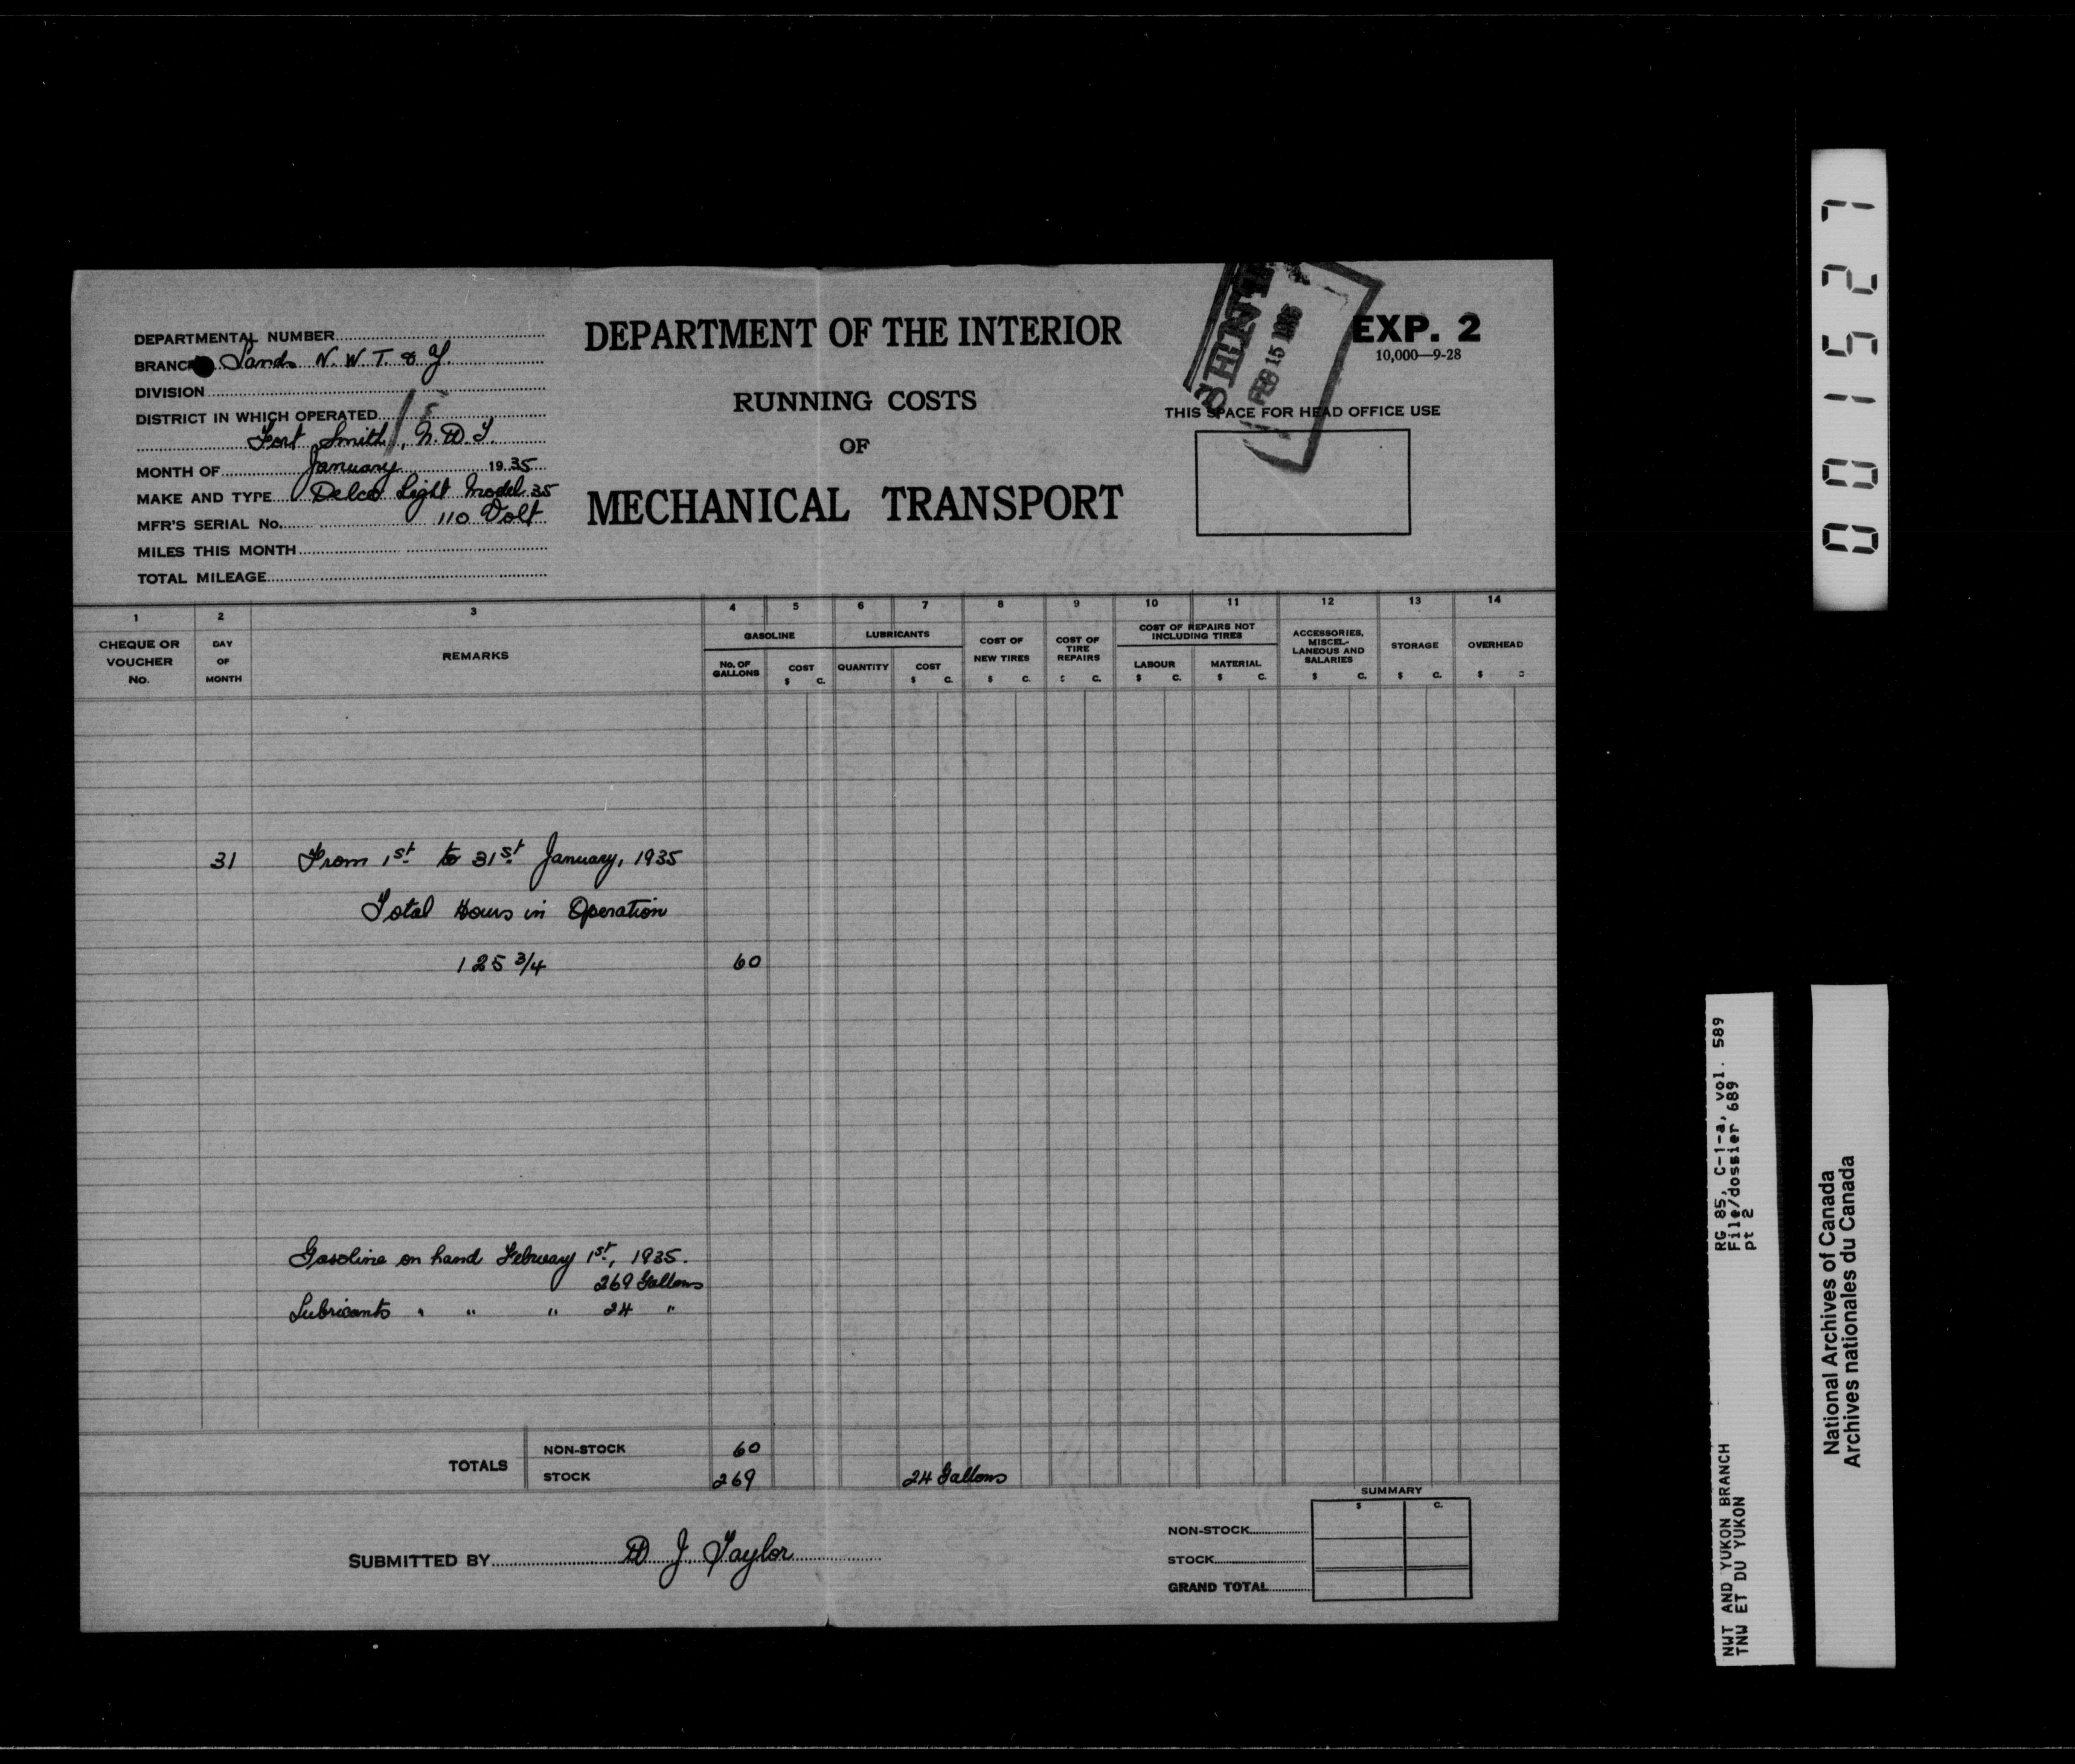 DEPARTMENTAL NUMBER
BRANCH Lands N. W. T. & Y.
DIVISION
DISTRICT IN WHICH OPERATED
Fort Smith, N.W.T.
MONTH OF January 1935
MAKE AND TYPE Delco Light Model 35
MFR'S SERIAL No. 110 Volt
MILES THIS MONTH
TOTAL MILEAGE
DEPARTMENT OF THE INTERIOR
RUNNING COSTS
OF
MECHANICAL TRANSPORT
FEB 15 1935
EXP. 2
10,000—9-28
THIS SPACE FOR HEAD OFFICE USE
1 2 3 4 5 6 7 8 9 10 11 12 13 14
CHEQUE OR VOUCHER No.
DAY OF MONTH
REMARKS
GASOLINE
No. OF GALLONS
COST
$ C.
LUBRICANTS
QUANTITY
COST
$ C.
COST OF NEW TIRES
$ C.
COST OF TIRE REPAIRS
$ C.
COST OF REPAIRS NOT INCLUDING TIRES
LABOUR
$ C.
MATERIAL
$ C.
ACCESSORIES, MISCEL-LANEOUS AND SALARIES
$ C.
STORAGE
$ C.
OVERHEAD
$ C
31 From 1st to 31st January, 1935
Total Hours in Operation
125 3/4 60
Gasoline on hand February 1st, 1935.
269 Gallons
Lubricants " " " 24 "
TOTALS
NON-STOCK 60
STOCK 269 24 Gallons
SUBMITTED BY D J Taylor
SUMMARY
$ C.
NON-STOCK
STOCK
GRAND TOTAL
001527
RG 85, C-1-a, vol. 589
File/dossier 689
pt 2
NWT AND YUKON BRANCH
TNW ET DU YUKON
National Archives of Canada
Archives nationales du Canada